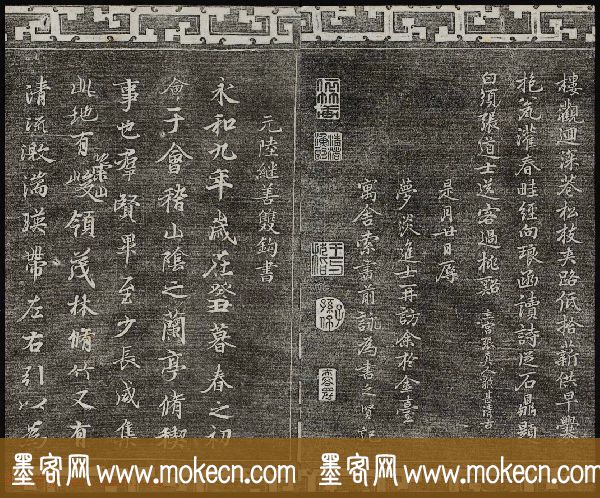 樓觀迴深巷松枝夾路低拾薪供早爨
抱瓮灌春畦經向琅函讀詩從石鼎題
白須張道士送客過桃谿
是月廿日
夢沒進士再訪余於金臺
寓舍索書前詠為書之
元陸繼善雙鉤書
永和九年歲在癸丑暮春之初
會于會稽山陰之蘭亭脩稧
事也群賢畢至少長咸集
此地有崇山峻領茂林脩竹又有
清流激湍暎帶左右引以為
墨客网 www.mokecn.com
墨客网 www.mokecn.com